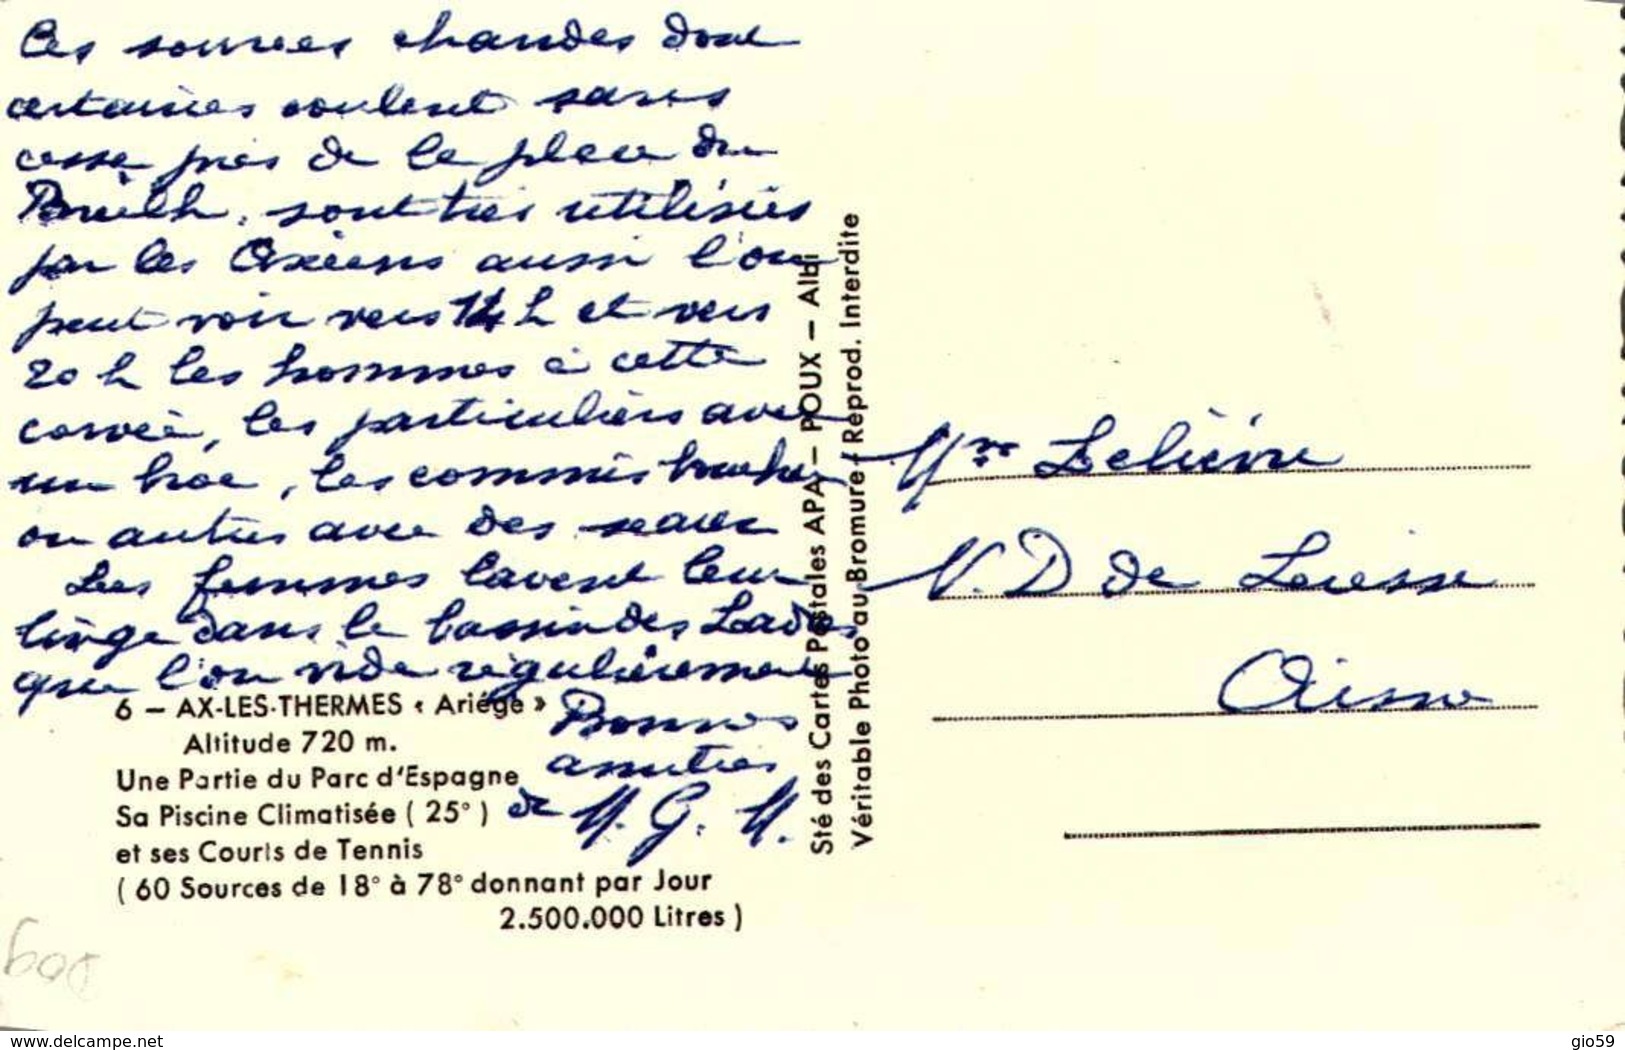 Ces sources chaudes dont
certaines coulent sans
cesse près de la place du
Breilh, sont très utilisées
par les Axéens aussi l'on
peut voir vers 14 h et vers
20 h les hommes à cette
corvée, les particuliers avec
un broc, les commis bouchers
ou autres avec des seaux
Les femmes lavent leur
linge dans le bassin des Ladres
que l'on vide régulièrement
Bonnes
amitiés
de M. G. M.
6 — AX-LES-THERMES « Ariége »
Altitude 720 m.
Une Partie du Parc d'Espagne
Sa Piscine Climatisée ( 25° )
et ses Courts de Tennis
( 60 Sources de 18° à 78° donnant par Jour
2.500.000 Litres )
Sté des Cartes Postales APA — POUX — Albi
Véritable Photo au Bromure - Reprod. Interdite
Mme Lelièvre
N. D de Liesse
Aisne
www.delcampe.net
gio59